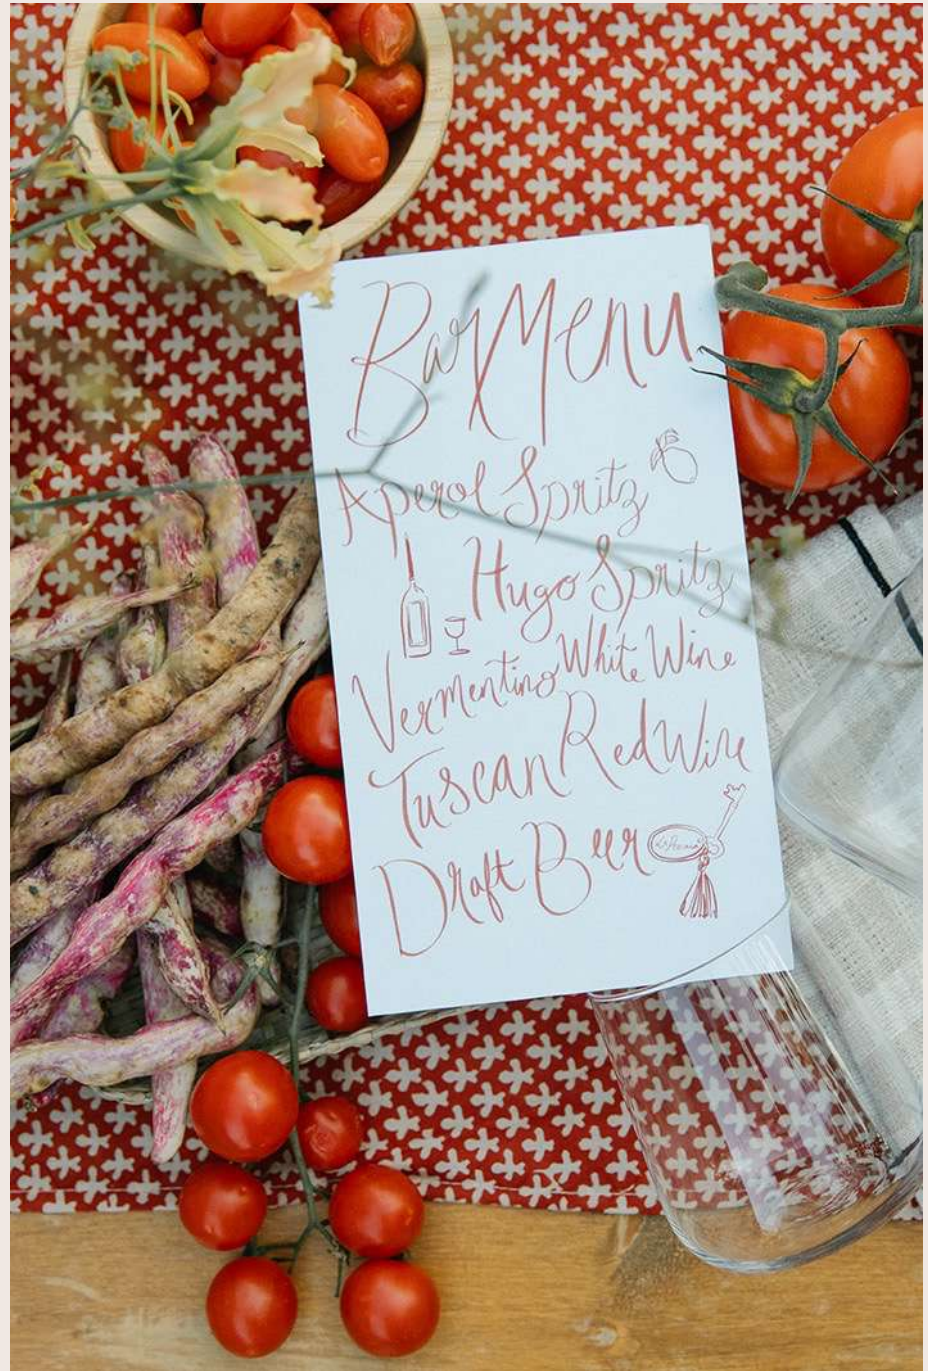 Bar Menu
Aperol Spritz
Hugo Spritz
Vermentino White Wine
Tuscan Red Wine
Draft Beer